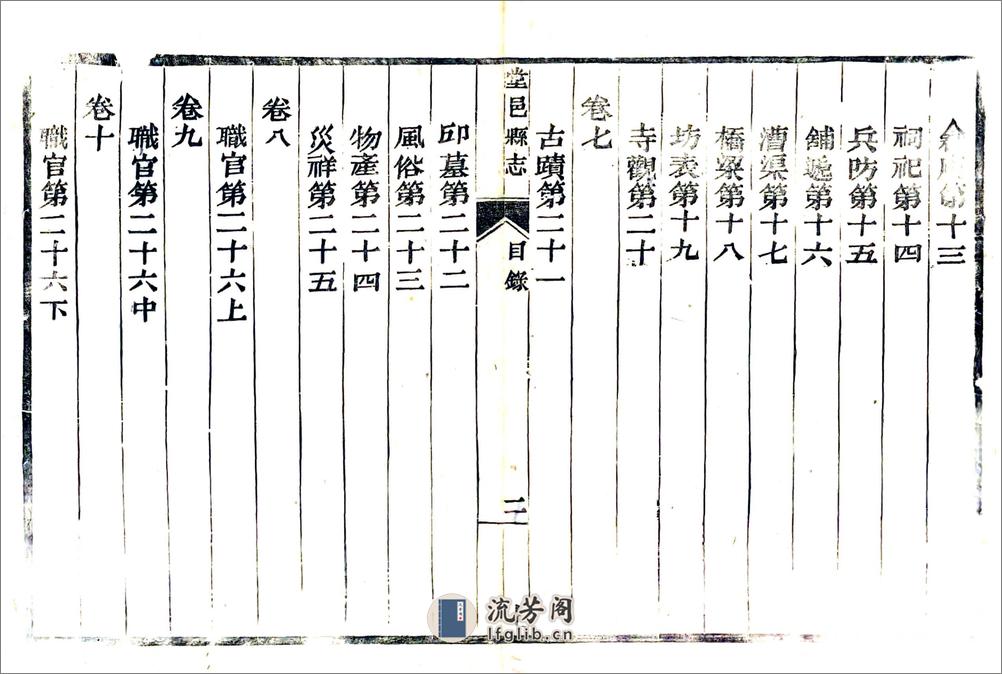 第十三
祠祀第十四
兵防第十五
鋪遞第十六
漕渠第十七
橋梁第十八
坊表第十九
寺觀第二十
卷七
古蹟第二十一
堂邑縣志
目錄
二
邱墓第二十二
風俗第二十三
物產第二十四
災祥第二十五
卷八
職官第二十六上
卷九
職官第二十六中
卷十
職官第二十六下
流芳阁
lfglib.cn